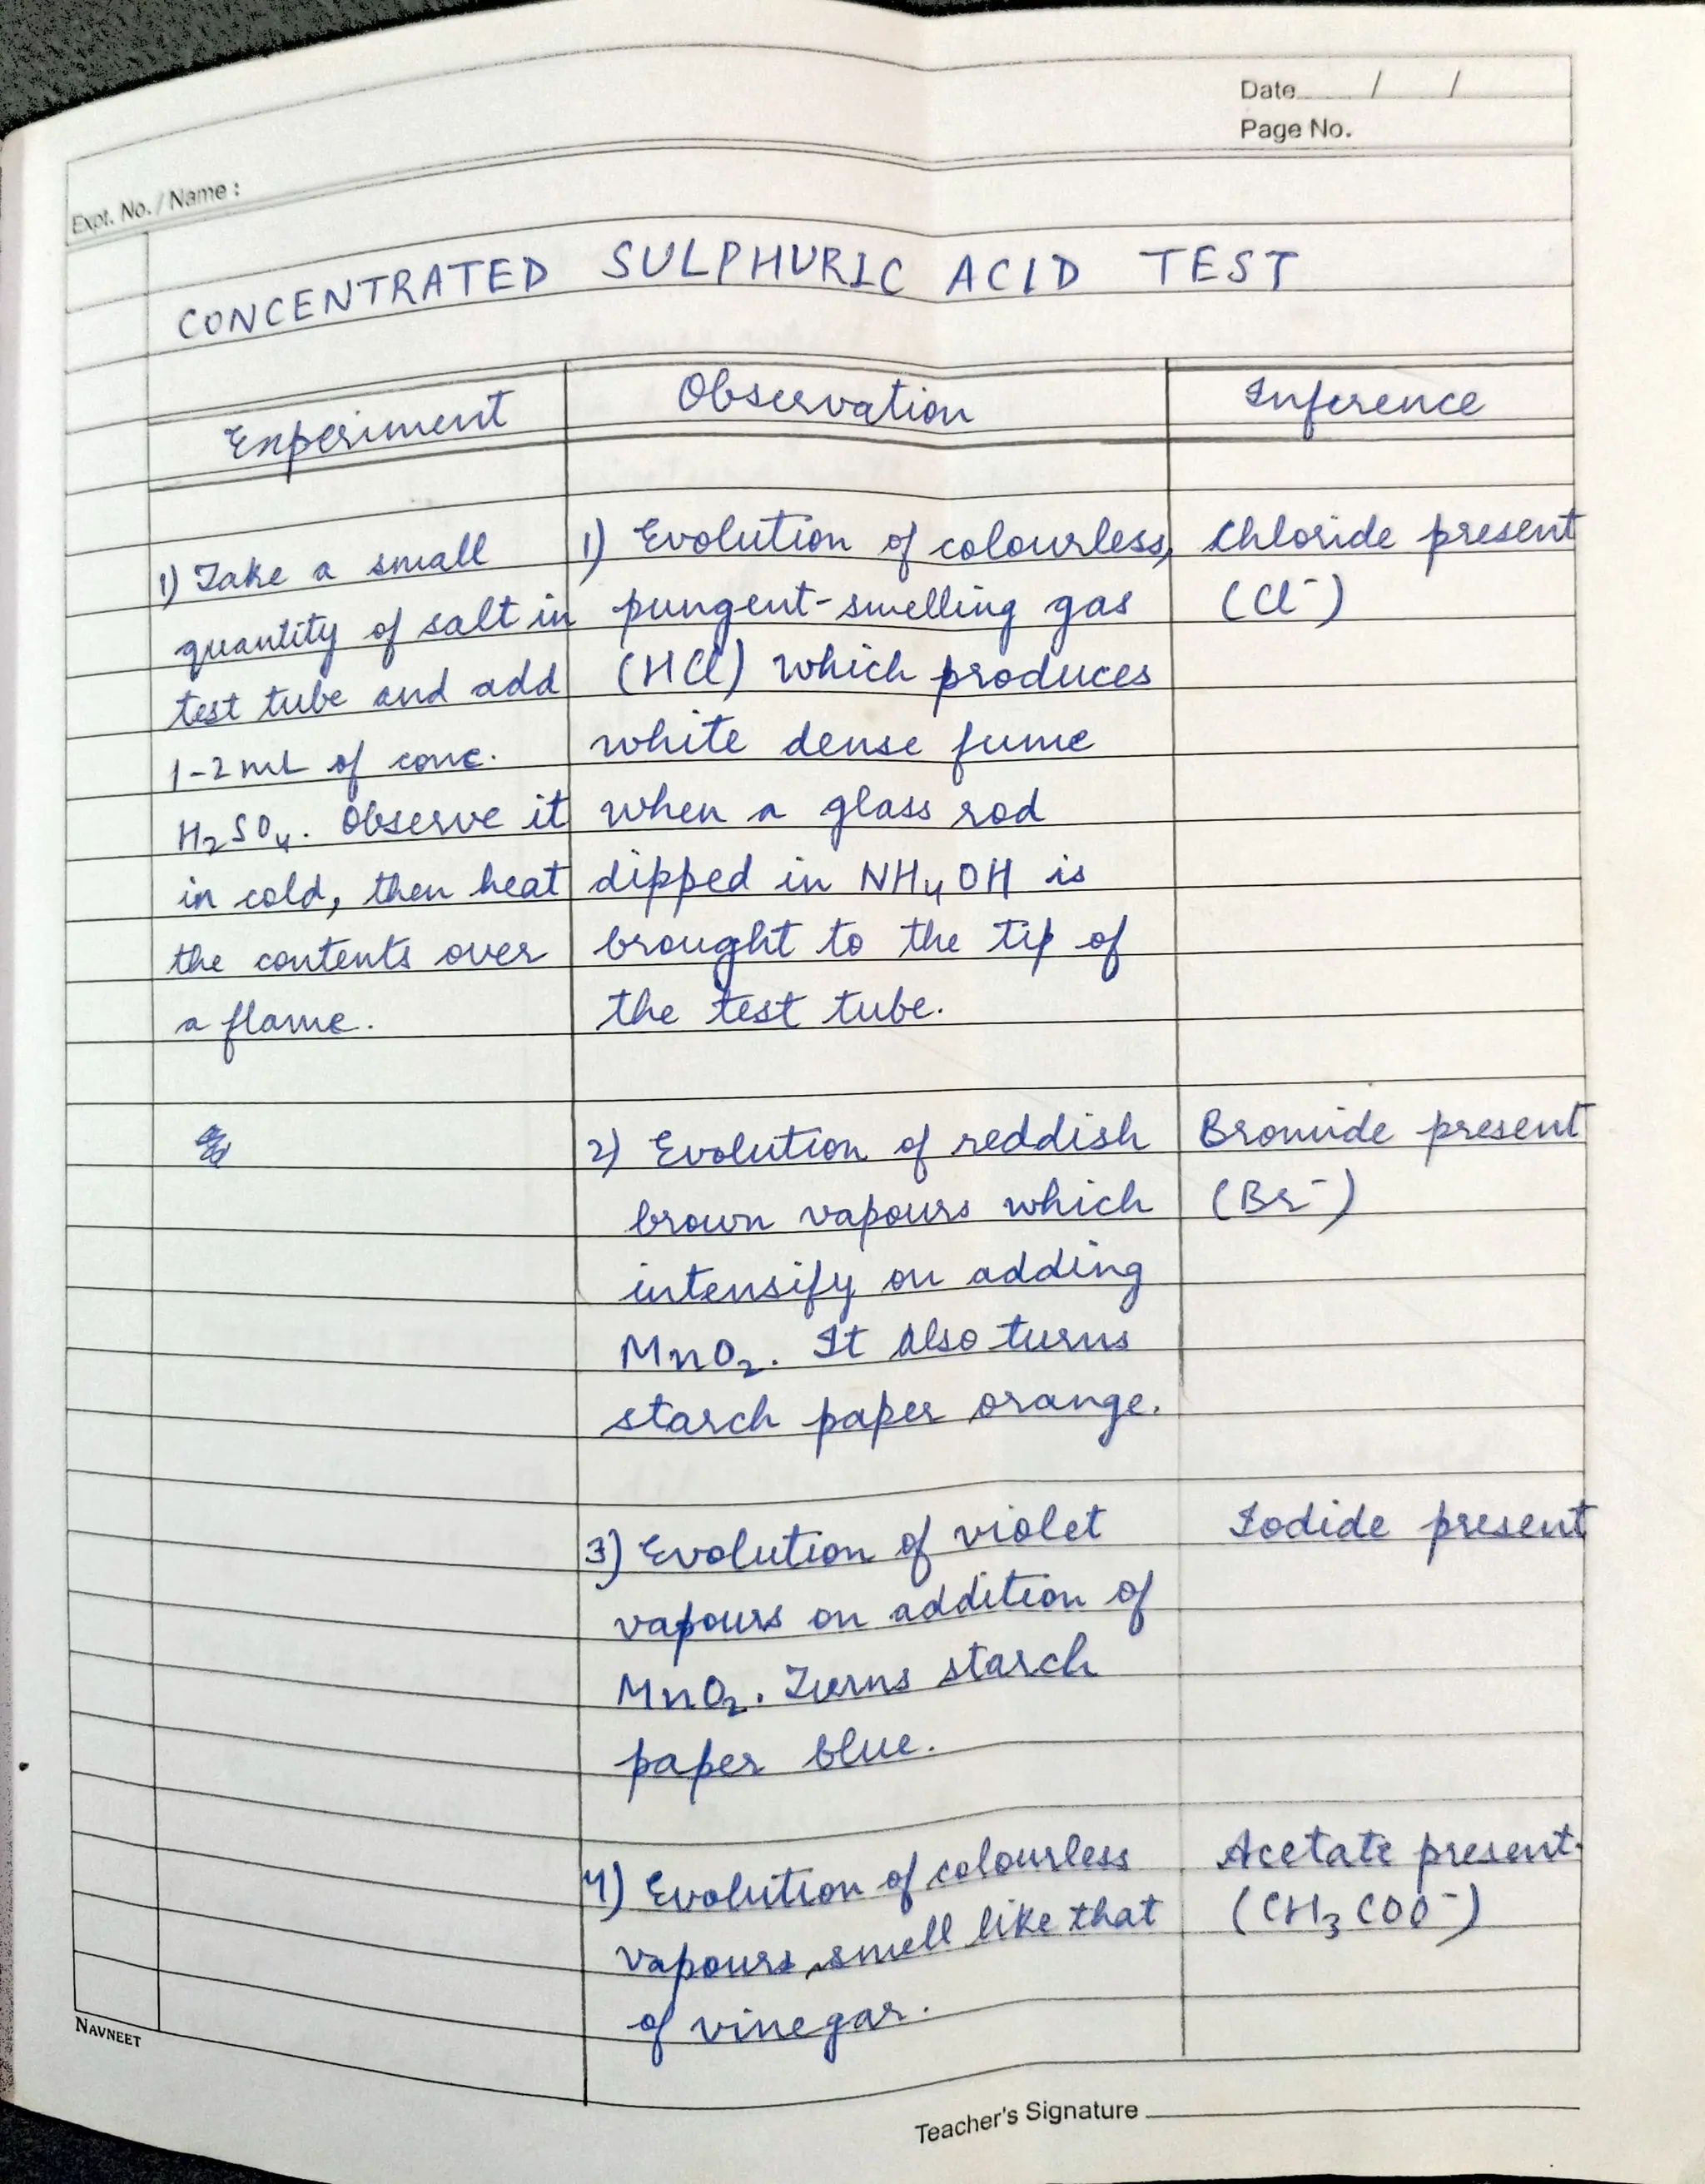 Date / /
Page No.
Expt. No. / Name :
CONCENTRATED SULPHURIC ACID TEST
Experiment
Observation
Inference
1) Take a small
quantity of salt in
test tube and add
1-2 mL of conc.
H₂SO₄. Observe it
in cold, then heat
the contents over
a flame.
1) Evolution of colourless,
pungent-smelling gas
(HCl) which produces
white dense fume
when a glass rod
dipped in NH₄OH is
brought to the tip of
the test tube.
Chloride present
(Cl⁻)
2) Evolution of reddish
brown vapours which
intensify on adding
MnO₂. It also turns
starch paper orange.
Bromide present
(Br⁻)
3) Evolution of violet
vapours on addition of
MnO₂. Turns starch
paper blue.
Iodide present
4) Evolution of colourless
vapours, smell like that
of vinegar.
Acetate present.
(CH₃COO⁻)
NAVNEET
Teacher's Signature